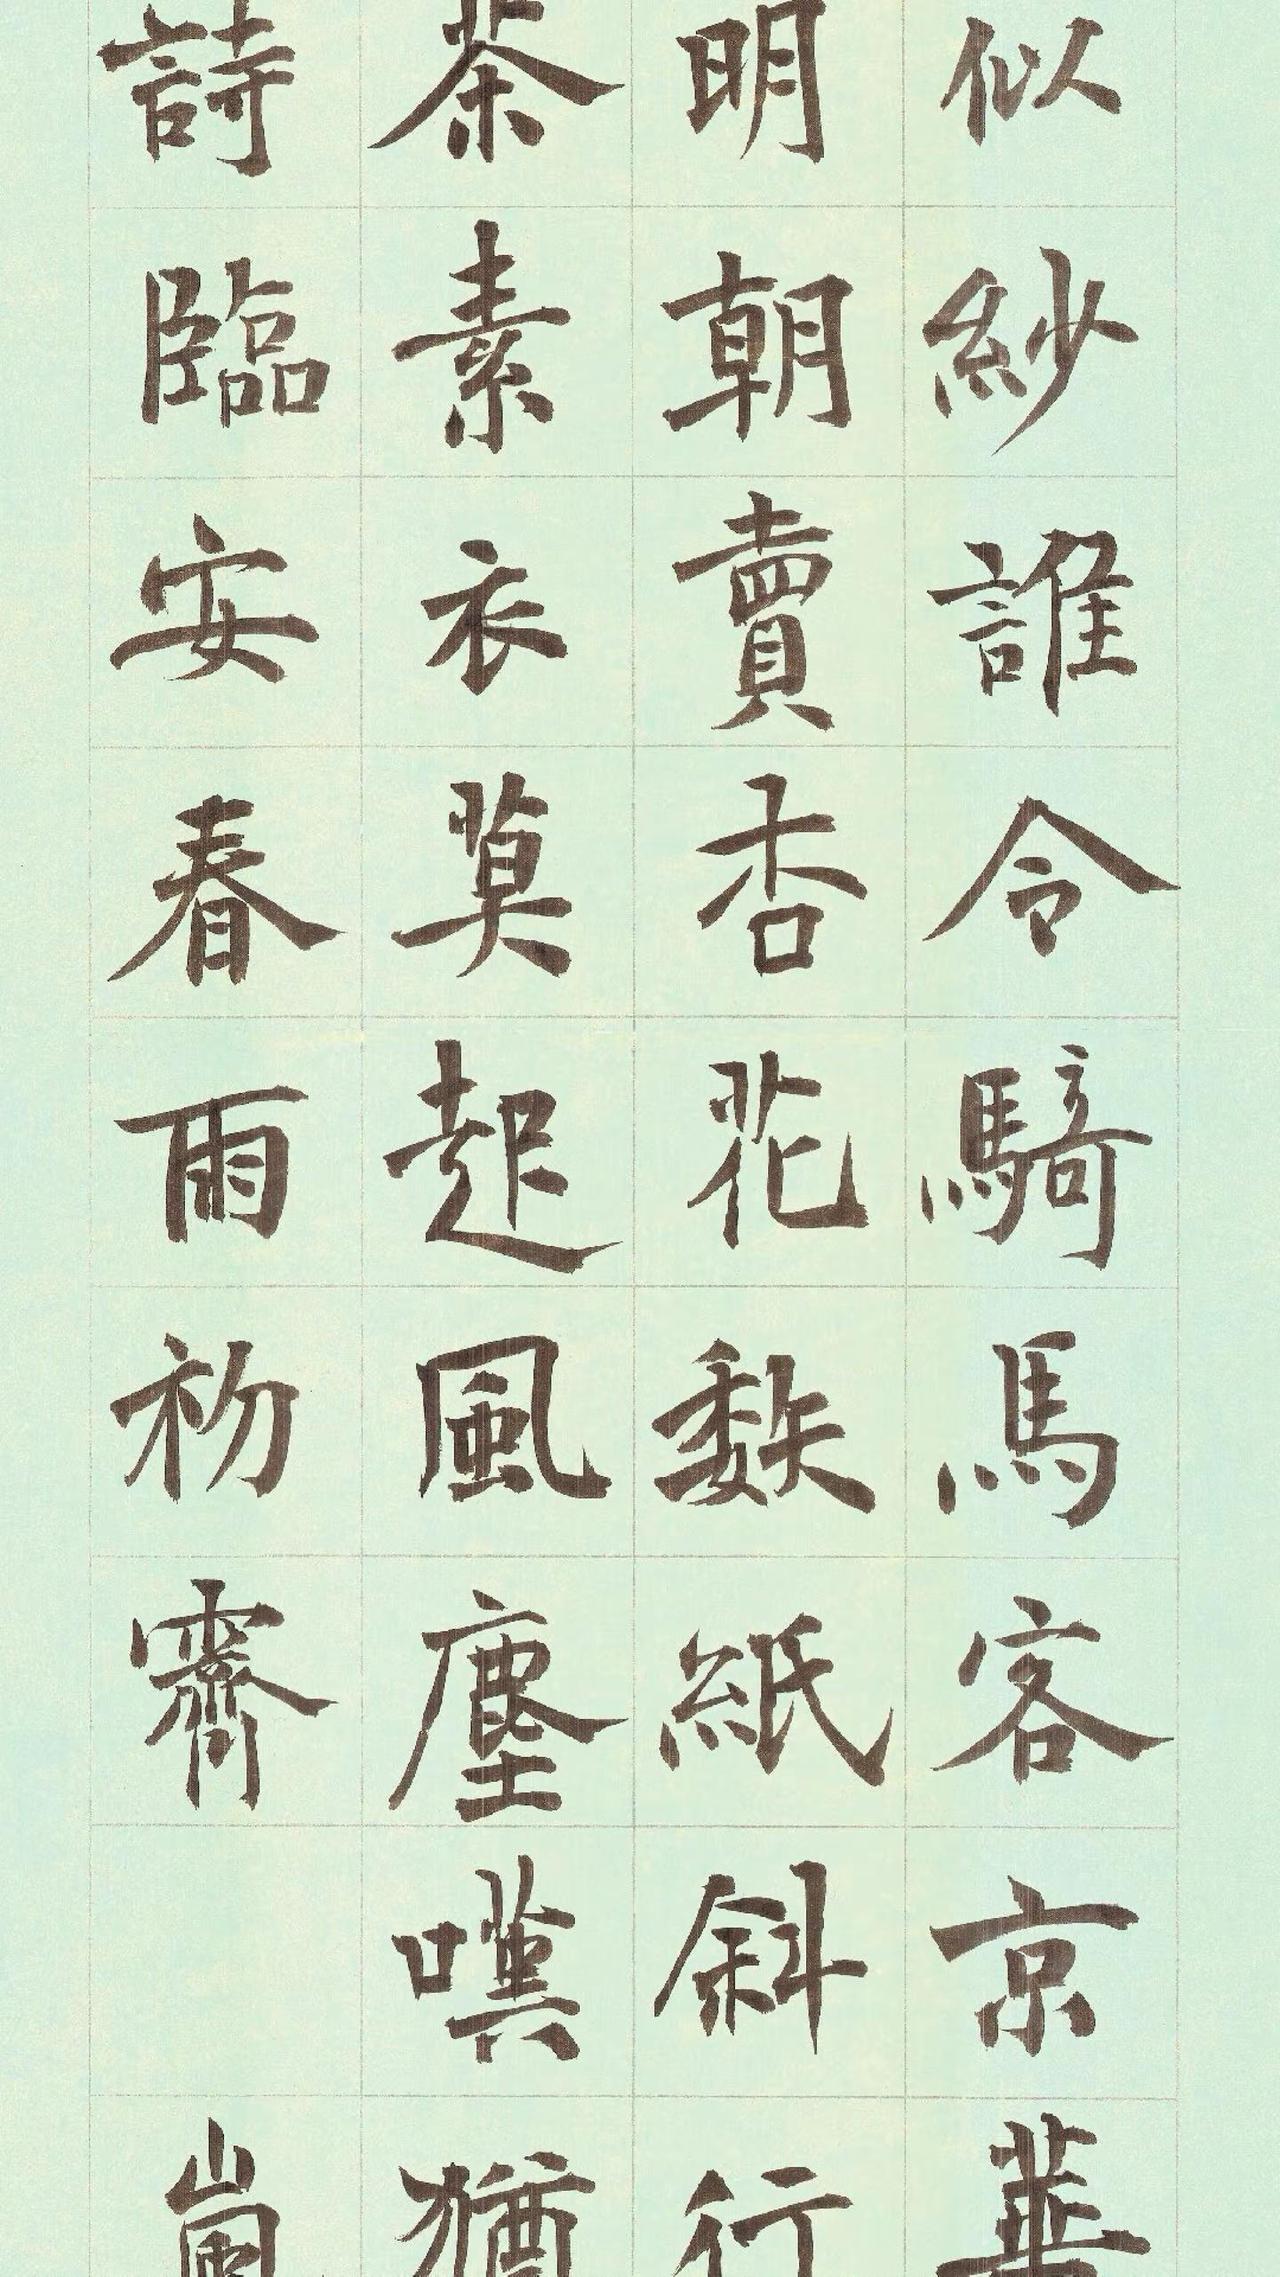 似紗誰令騎馬客京華
明朝賣杏花矮紙斜行
茶素衣莫起風塵嘆猶
詩臨安春雨初霽